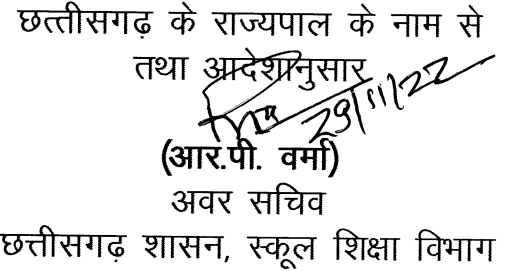 छत्तीसगढ़ के राज्यपाल के नाम से
तथा आदेशानुसार
29/11/22
(आर.पी. वर्मा)
अवर सचिव
छत्तीसगढ़ शासन, स्कूल शिक्षा विभाग